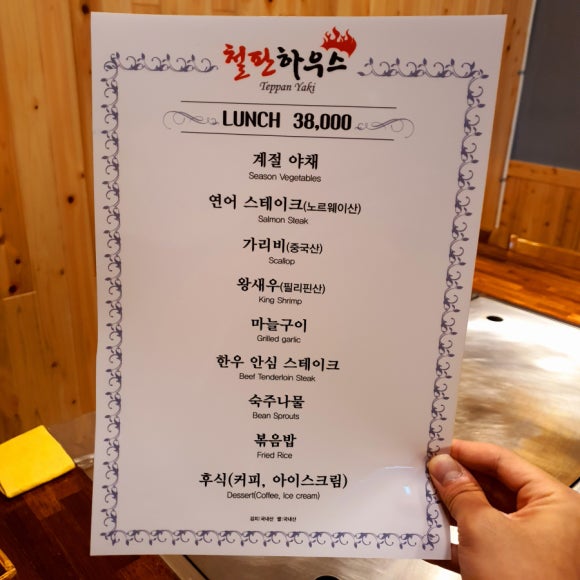 철판하우스
Teppan Yaki
LUNCH 38,000
계절 야채
Season Vegetables
연어 스테이크(노르웨이산)
Salmon Steak
가리비(중국산)
Scallop
왕새우(필리핀산)
King Shrimp
마늘구이
Grilled garlic
한우 안심 스테이크
Beef Tenderloin Steak
숙주나물
Bean Sprouts
볶음밥
Fried Rice
후식(커피, 아이스크림)
Dessert(Coffee, Ice cream)
김치:국내산 쌀:국내산